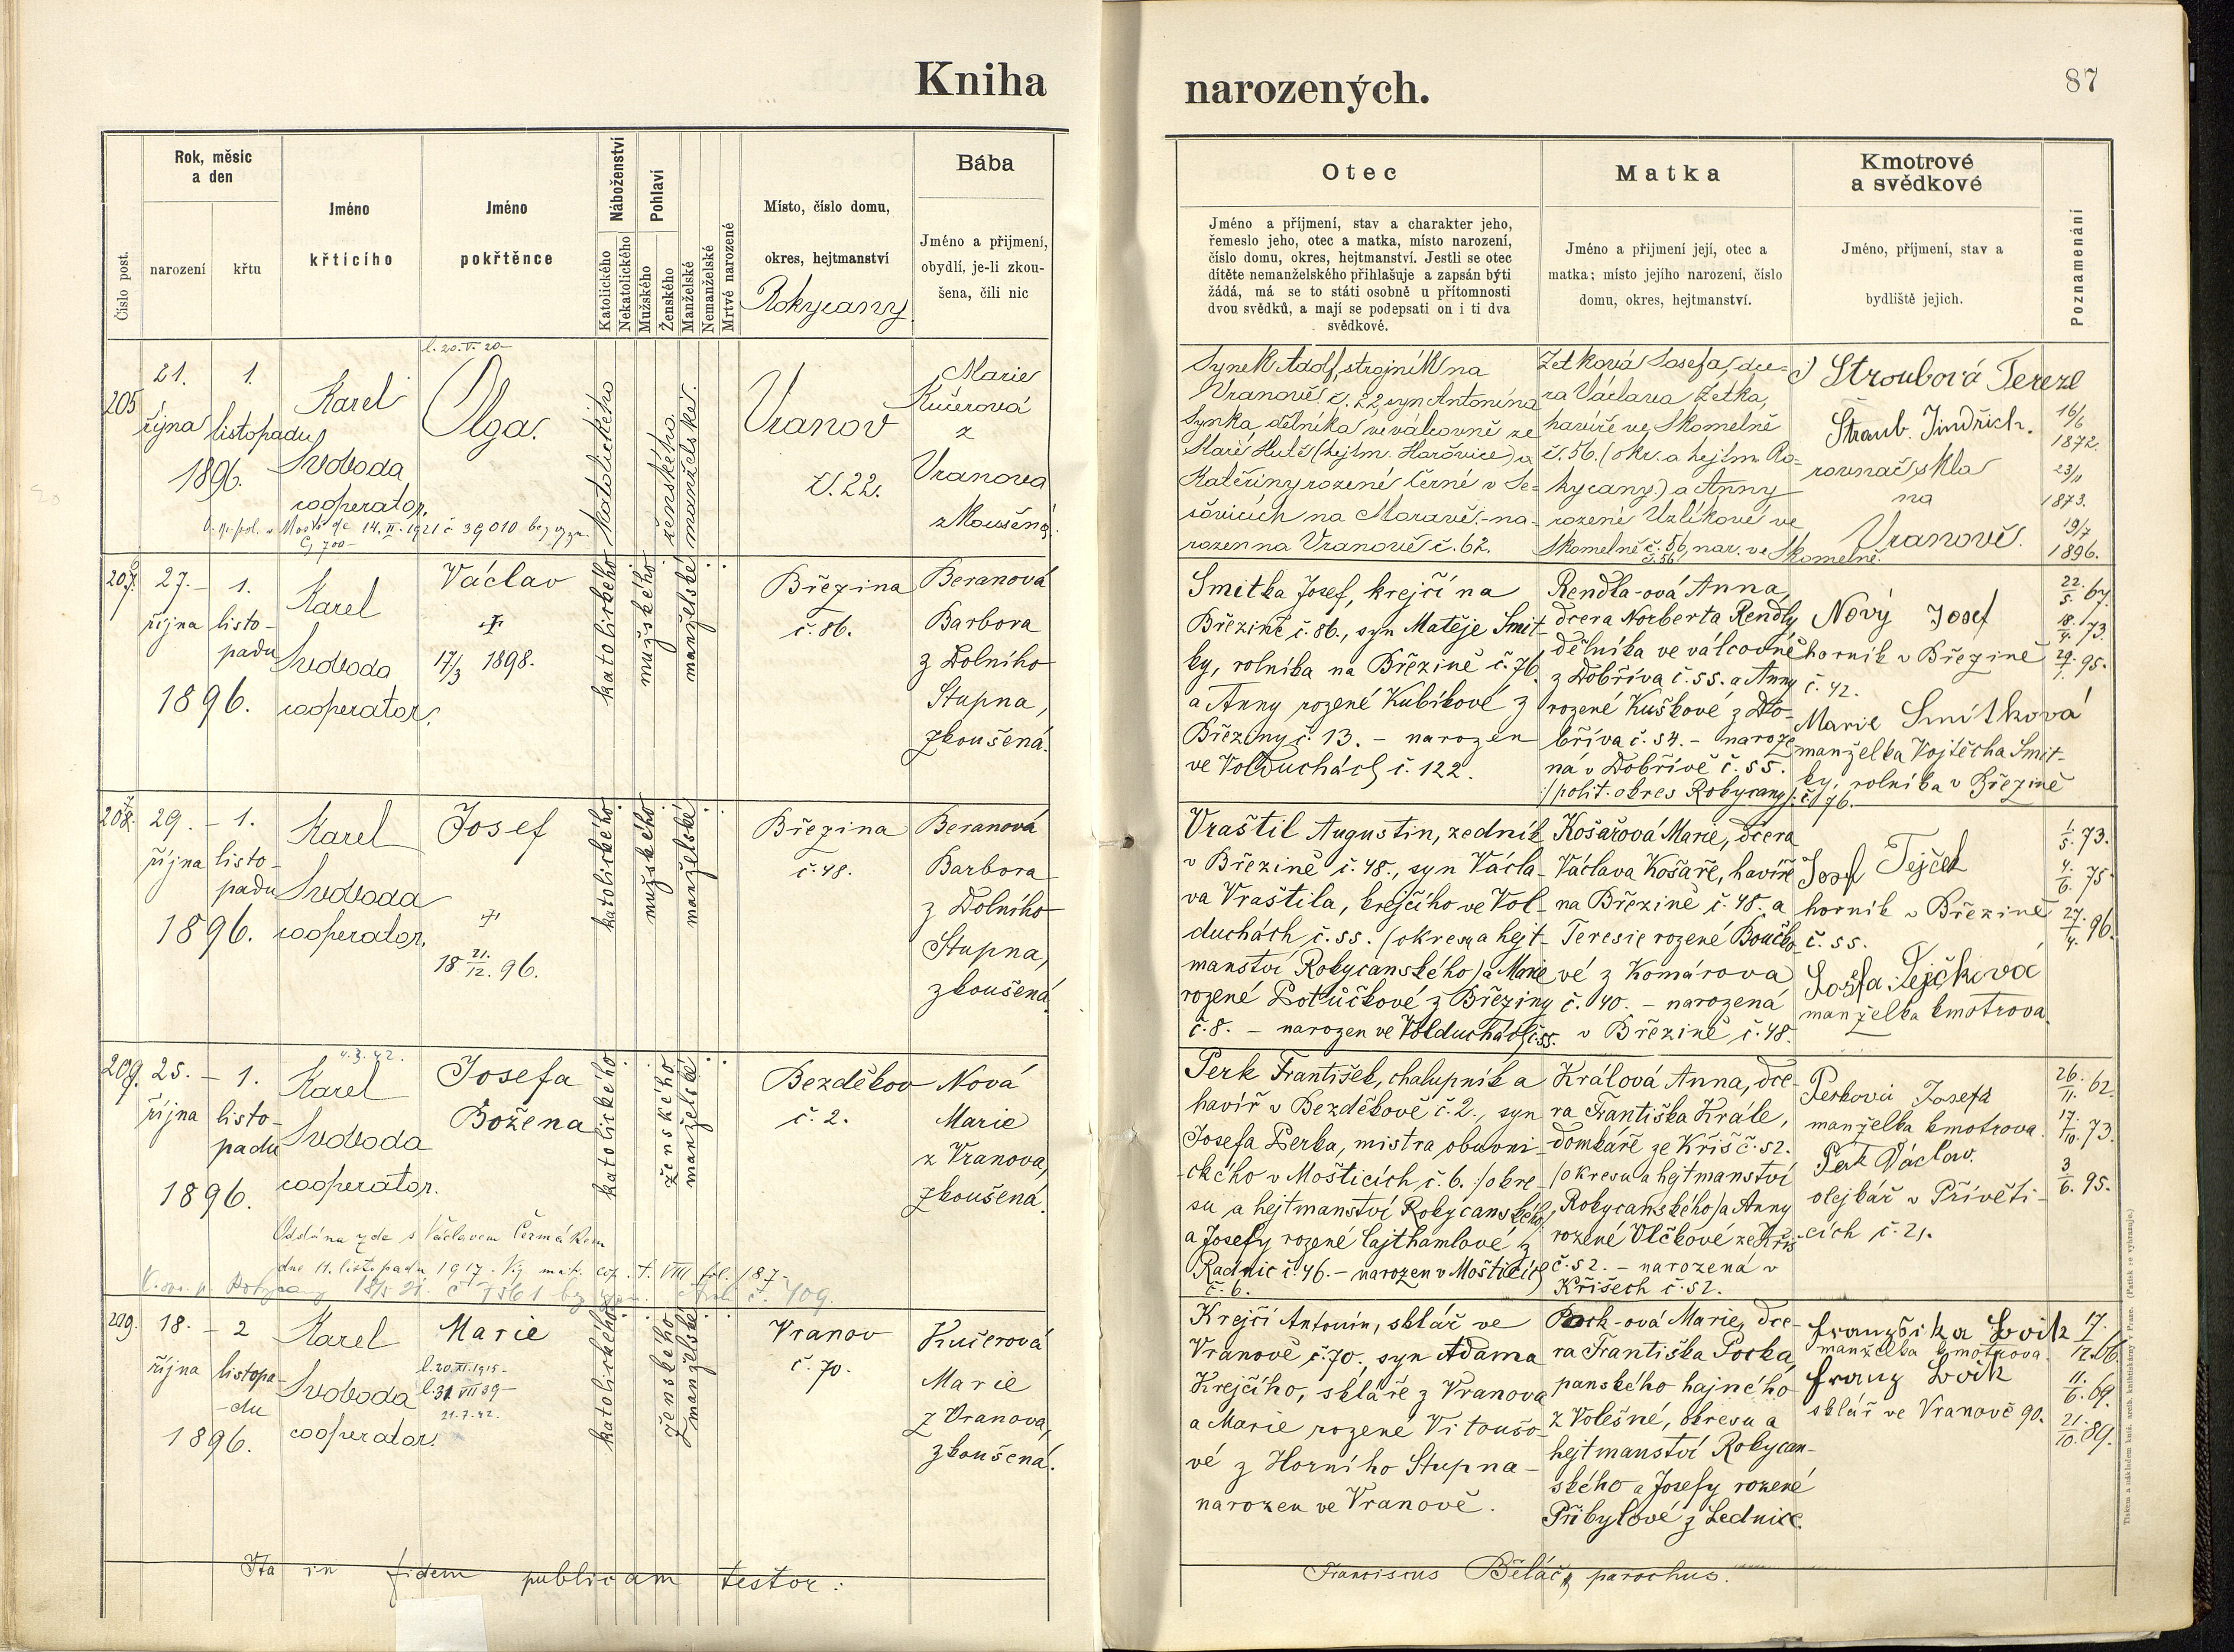 Kniha
narozených.
87
Číslo post.
Rok, měsíc
a den
narození
křtu
Jméno
křticího
Jméno
pokřtěnce
Náboženství
Katolického
Nekatolického
Pohlaví
Mužského
Ženského
Manželské
Nemanželské
Mrtvé narozené
Místo, číslo domu,
okres, hejtmanství
Rokycany
Bába
Jméno a přijmení,
obydlí, je-li zkou-
šena, čili nic
Otec
Jméno a příjmení, stav a charakter jeho,
řemeslo jeho, otec a matka, místo narození,
číslo domu, okres, hejtmanství. Jestli se otec
dítěte nemanželského přihlašuje a zapsán býti
žádá, má se to státi osobně u přítomnosti
dvou svědků, a mají se podepsati on i ti dva
svědkové.
Matka
Jméno a přijmení její, otec a
matka; místo jejího narození, číslo
domu, okres, hejtmanství.
Kmotrové
a svědkové
Jméno, příjmení, stav a
bydliště jejich.
Poznamenání
205
21.
října
1.
listopadu
1896.
Karel
Svoboda
cooperator.
l. 20. V. 20
Olga.
katolického
ženského
manželské.
Vranov
č. 22.
Marie
Kučerová
z
Vranova
zkoušená.
14. II. 1921 č 39010
Synek Adolf, strojník na
Vranově č. 22, syn Antonína
Synka, dělníka ve válcovně ze
Staré Hutě (hejtm. Hořovice) a
Kateřiny rozené Černé v
na Moravě. - na-
rozen na Vranově č. 62.
Zetková Josefa, dce-
ra Václava Zetka,
havíře ve Skomelně
č. 56. (okr. a hejtm. Ro-
kycany) a Anny
rozené Uzlíkové ve
Skomelně č. 56, nar. ve Skomelně.
č. 56
Stroubová Tereze
Štraub. Jindřich.
rovnač skla
na
Vranově.
16/6
1872.
23/11
1873.
19/7
1896.
207.
27.
října
1.
listo-
padu
1896.
Karel
Svoboda
cooperator.
Václav
17/3 1898.
katolického
mužského
manželské
Březina
č. 86.
Beranová
Barbora
z Dolního
Stupna,
zkoušená.
Smitka Josef, krejčí na
Březině č. 86., syn Matěje Smit-
ky, rolníka na Březině č. 76.
a Anny rozené Kubíkové z
Březiny č. 13. - narozen
ve Volduchách č. 122.
Rendla-ová Anna,
dcera Norberta Rendly
dělníka ve válcovně
z Dobříva č. 55. a Anny
rozené Kuškové z Do-
bříva č. 54. - naroze
ná v Dobřívě č. 55.
/polit. okres Rokycany/.
Nový Josef
horník v Březině
č. 42.
Marie Smitková
manželka Vojtěcha Smit-
ky, rolníka v Březině
č. 76.
22./5. 67.
18./4. 73.
29./1. 95.
208.
29.
října
1.
listo-
padu
1896.
Karel
Svoboda
cooperator.
Josef
18 21./12. 96.
katolického
mužského
manželské
Březina
č. 48.
Beranová
Barbora
z Dolního
Stupna,
zkoušená.
Vraštil Augustin, zedník
v Březině č. 48., syn Václa-
va Vraštila, krejčího ve Vol-
duchách č. 55. (okresu a hejt-
manství Rokycanského) a Marie
rozené Potůčkové z Březiny
č. 8. - narozen ve Volduchách č. 55.
Košařová Marie, dcera
Václava Košaře, havíře
na Březině č. 48. a
Teresie rozené Boučko-
vé z Komárova
č. 40. - narozená
v Březině č. 48.
Josef Tejček
horník v Březině
č. 55.
Žofia Tejčková
manželka kmotrova.
1/5. 73.
4./6. 75
27./4. 96.
209.
25.
října
1.
listo-
padu
1896.
4. 3. 42.
Karel
Svoboda
cooperator.
Josefa
Božena
katolického
ženského
manželské
Bezděkov
č. 2.
Nová
Marie
z Vranova,
zkoušená.
Oddána zde s Václavem Čermákem
dne 11. listopadu 1917. Viz mat. cop. t. VIII fol. 187.
Perk František, chalupník a
havíř v Bezděkově č. 2., syn
Josefa Perka, mistra obuvni-
ckého v Mošticích č. 6. /okre-
su a hejtmanství Rokycanského/
a Josefy rozené Lajthamlové z
Radnic č. 46. - narozen v Mošticích
č. 6.
Králová Anna, dce-
ra Františka Krále,
domkáře ze Křiš č. 52.
(okresu a hejtmanství
Rokycanského) a Anny
rozené Vlčkové ze Křiš
č. 52. - narozena v
Křišech č. 52.
Perková Josefa
manželka kmotrova.
Perk Václav.
olejkář v Přívěti-
cích č. 21.
26./11. 62.
17./10. 73.
3/6. 95.
209.
18.
října
2
listopa-
du
1896.
Karel
Svoboda
cooperator.
Marie
l. 20. XI. 1915
l. 31 VII 39
21. 7. 42.
katolického
ženského
manželské
Vranov
č. 70.
Kučerová
Marie
z Vranova,
zkoušená.
Krejčí Antonín, sklář ve
Vranově č. 70., syn Adama
Krejčího, skláře z Vranova
a Marie rozené Vitoušo-
vé z Horního Stupna -
narozen ve Vranově.
Pock-ová Marie, dce-
ra Františka Pocka,
panského hajného
z Volešné, okresu a
hejtmanství Rokycan-
ského a Josefy rozené
Přibylové z Lednice.
Franziska Lvik
manželka kmotrova.
Franz Lvik
sklář ve Vranově 90.
17./12. 66.
11./6. 69.
21./10. 89.
Ita in fidem publicam testor:
Franciscus Běláč, parochus.